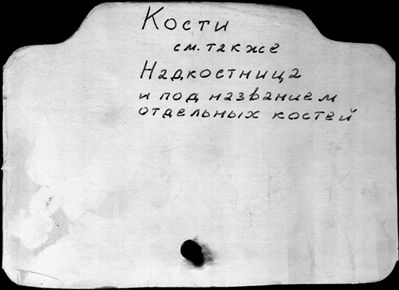 Кости
см. также
Надкостница
и под названием
отдельных костей